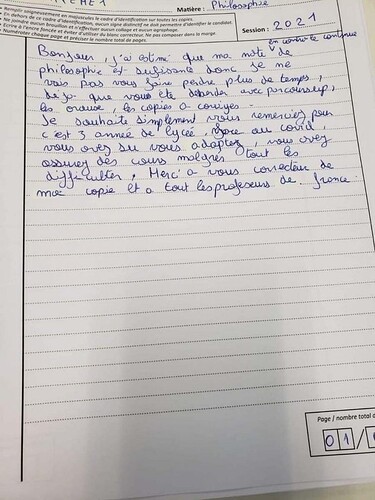 Matière : Philosophie
Session : 2021
• Remplir soigneusement en majuscules le cadre d'identification sur toutes les copies.
• En dehors de ce cadre d'identification, aucun signe distinctif ne doit permettre d'identifier le candidat
• Ne joindre aucun brouillon et n'effectuer aucun collage et aucun agrafage.
• Ecrire à l'encre foncée et éviter d'utiliser du blanc correcteur. Ne pas composer dans la marge
• Numéroter chaque page et préciser le nombre total de pages.
en contrôle continue
Bonjour, j'ai estimé que ma note de
philosophie et sufisante donc je ne
vais pas vous faire perdre plus de temps,
déjà que vous été débordé avec parcoursup,
les oraux, les copies a corriger.
Je souhaite simplement vous remerciez pour
c'est 3 année de lycée, face au covid,
vous avez su vous adaptez, vous avez
assurez des cours malgres tout les
difficulter, Merci a vous correcteur de
ma copie et a tout les profeseurs de france.
Page / nombre total de
0 1 /